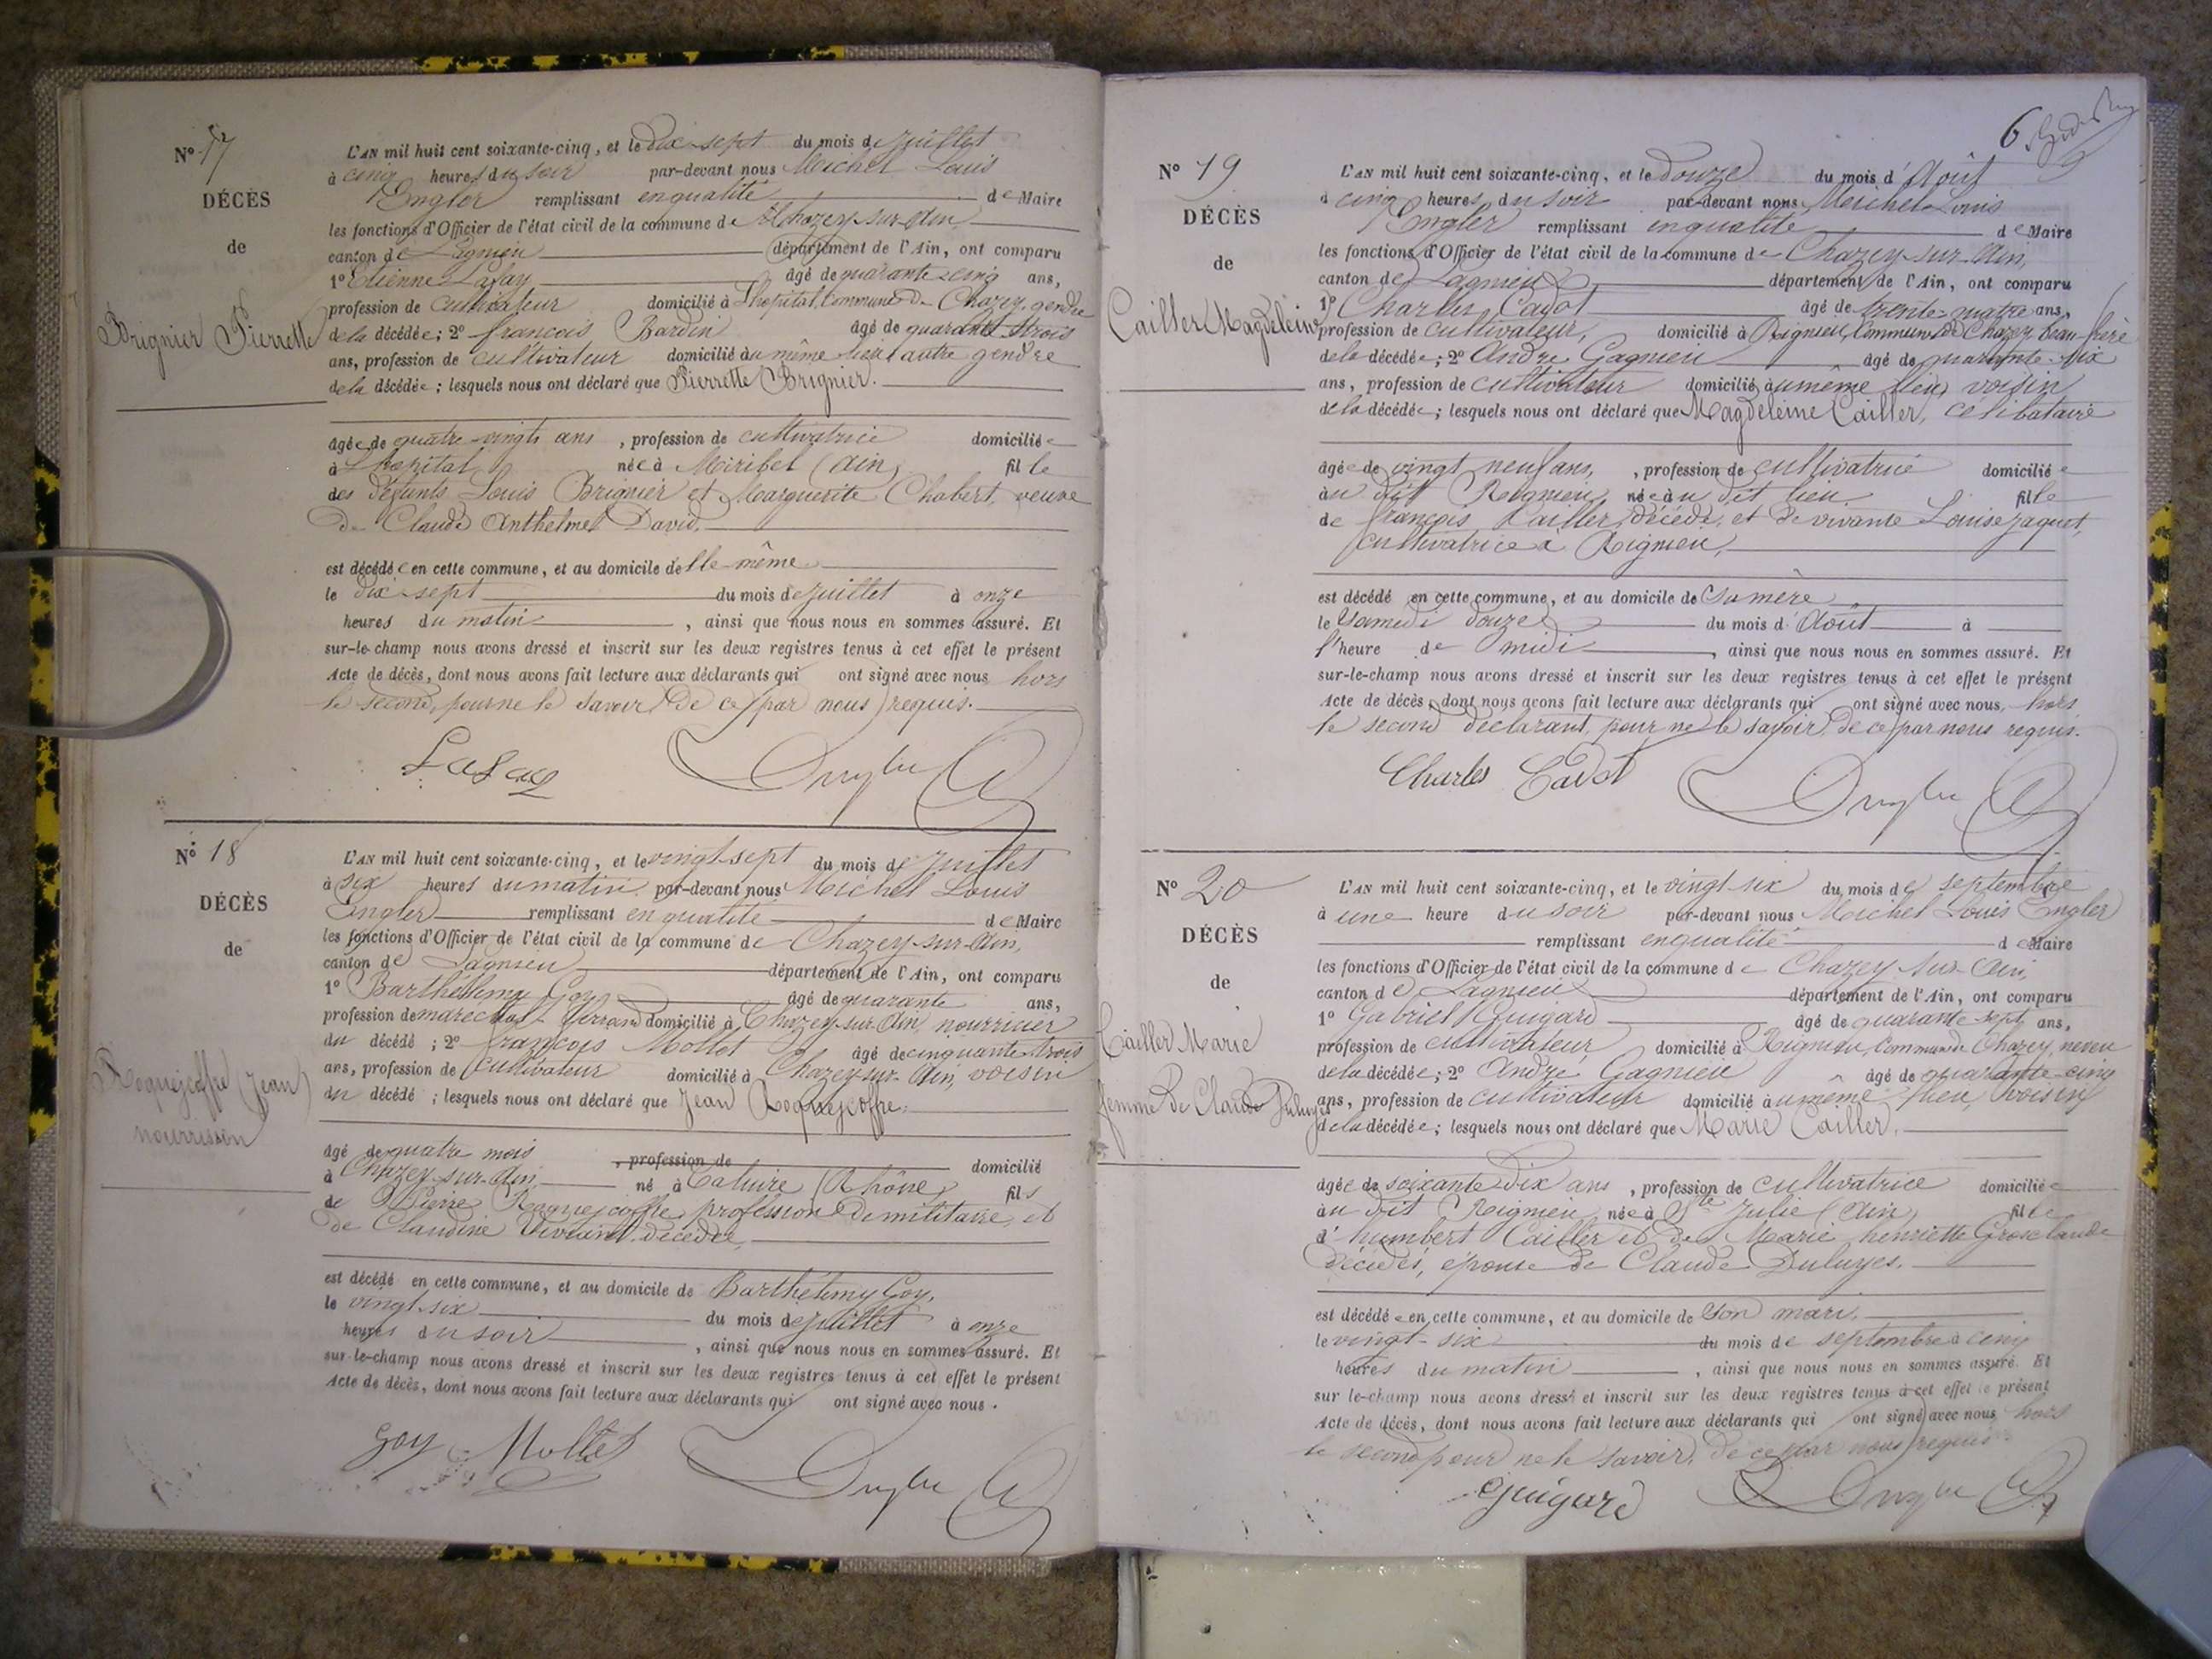 N° 17
DÉCÈS
de
Brignier Pierrette
L'AN mil huit cent soixante-cinq, et le dix-sept du mois de juillet
à cinq heures du soir par-devant nous Michel Louis
Engler remplissant en qualité de Maire
les fonctions d'Officier de l'état civil de la commune de Chazey-sur-Ain,
canton de Lagnieu département de l'Ain, ont comparu
1° Etienne Lafay âgé de quarante-cinq ans,
profession de cultivateur domicilié à L'hopital, Commune de Chazey, gendre
de la décédée; 2° françois Bardin âgé de quarante trois
ans, profession de cultivateur domicilié au même lieu, autre gendre
de la décédée; lesquels nous ont déclaré que Pierrette Brignier.
âgée de quatre-vingts ans, profession de cultivatrice domiciliée
à L'hopital, née à Miribel (Ain) fille
des défunts Louis Brignier et Marguerite Chabert, veuve
de Claude Anthelme David,
est décédée en cette commune, et au domicile d'elle-même
le dix-sept du mois de juillet à onze
heures du matin, ainsi que nous nous en sommes assuré. Et
sur-le-champ nous avons dressé et inscrit sur les deux registres tenus à cet effet le présent
Acte de décès, dont nous avons fait lecture aux déclarants qui ont signé avec nous hors
le second, pour ne le savoir, de ce (par nous) requis.
Lafay Engler
N° 18
DÉCÈS
de
Roquejoffre (Jean)
nourrisson
L'AN mil huit cent soixante-cinq, et le vingt-sept du mois de juillet
à six heures du matin par-devant nous Michel Louis
Engler remplissant en qualité de Maire
les fonctions d'Officier de l'état civil de la commune de Chazey-sur-Ain,
canton de Lagnieu département de l'Ain, ont comparu
1° Barthélemy Goy âgé de quarante ans,
profession de maréchal-ferrand domicilié à Chazey-sur-Ain, nourricier
du décédé; 2° françois Mollet âgé de cinquante-trois
ans, profession de Cultivateur domicilié à Chazey-sur-Ain, voisin
du décédé; lesquels nous ont déclaré que Jean Roquejoffre,
âgé de quatre mois, profession de domicilié
à Chazey-sur-Ain, né à Caluire (Rhône) fils
de Pierre Roquejoffre, profession de militaire, et
de Claudine Vivian, décédée,
est décédé en cette commune, et au domicile de Barthélemy Goy,
le vingt-six du mois de juillet à onze
heures du soir, ainsi que nous nous en sommes assuré. Et
sur-le-champ nous avons dressé et inscrit sur les deux registres tenus à cet effet le présent
Acte de décès, dont nous avons fait lecture aux déclarants qui ont signé avec nous.
Goy Mollet Engler
6
N° 19
DÉCÈS
de
Cailler Magdeleine
L'AN mil huit cent soixante-cinq, et le douze du mois d'Août
à cinq heures du soir par-devant nous Michel Louis
Engler remplissant en qualité de Maire
les fonctions d'Officier de l'état civil de la commune de Chazey-sur-Ain,
canton de Lagnieu département de l'Ain, ont comparu
1° Charles Cadot âgé de trente-quatre ans,
profession de cultivateur, domicilié à Rignieu, Commune de Chazey, beau-frère
de la décédée; 2° André Gagnieu âgé de quarante-six
ans, profession de cultivateur domicilié au même lieu, voisin
de la décédée; lesquels nous ont déclaré que Magdeleine Cailler, célibataire
âgée de vingt neuf ans, profession de cultivatrice domiciliée
au dit Rignieu, née au dit lieu fille
de françois Cailler, décédé, et de vivante Louise Jaquet,
cultivatrice à Rignieu,
est décédé en cette commune, et au domicile de sa mère
le samedi douze du mois d'Août à
l'heure de midi, ainsi que nous nous en sommes assuré. Et
sur-le-champ nous avons dressé et inscrit sur les deux registres tenus à cet effet le présent
Acte de décès, dont nous avons fait lecture aux déclarants qui ont signé avec nous, hors
le second déclarant, pour ne le savoir, de ce par nous requis.
Charles Cadot Engler
N° 20
DÉCÈS
de
Cailler Marie
femme de Claude Duluyes
L'AN mil huit cent soixante-cinq, et le vingt six du mois de septembre
à une heure du soir par-devant nous Michel Louis Engler
remplissant en qualité de Maire
les fonctions d'Officier de l'état civil de la commune de Chazey-sur-Ain,
canton de Lagnieu département de l'Ain, ont comparu
1° Gabriel Guigard âgé de quarante-sept ans,
profession de cultivateur domicilié à Rignieu, Commune de Chazey, neveu
de la décédée; 2° André Gagnieu âgé de quarante-cinq
ans, profession de cultivateur domicilié au même lieu, voisin
de la décédée; lesquels nous ont déclaré que Marie Cailler,
âgée de soixante Dix ans, profession de cultivatrice domiciliée
au dit Rignieu, née à Ste Julie (Ain) fille
d'humbert Cailler et de Marie henriette Grosclaude
décédés, épouse de Claude Duluyes.
est décédée en cette commune, et au domicile de son mari,
le vingt-six du mois de septembre à cinq
heures du matin, ainsi que nous nous en sommes assuré. Et
sur le-champ nous avons dressé et inscrit sur les deux registres tenus à cet effet le présent
Acte de décès, dont nous avons fait lecture aux déclarants qui ont signé avec nous hors
le second pour ne le savoir, de ce (par nous) requis.
Guigard Engler